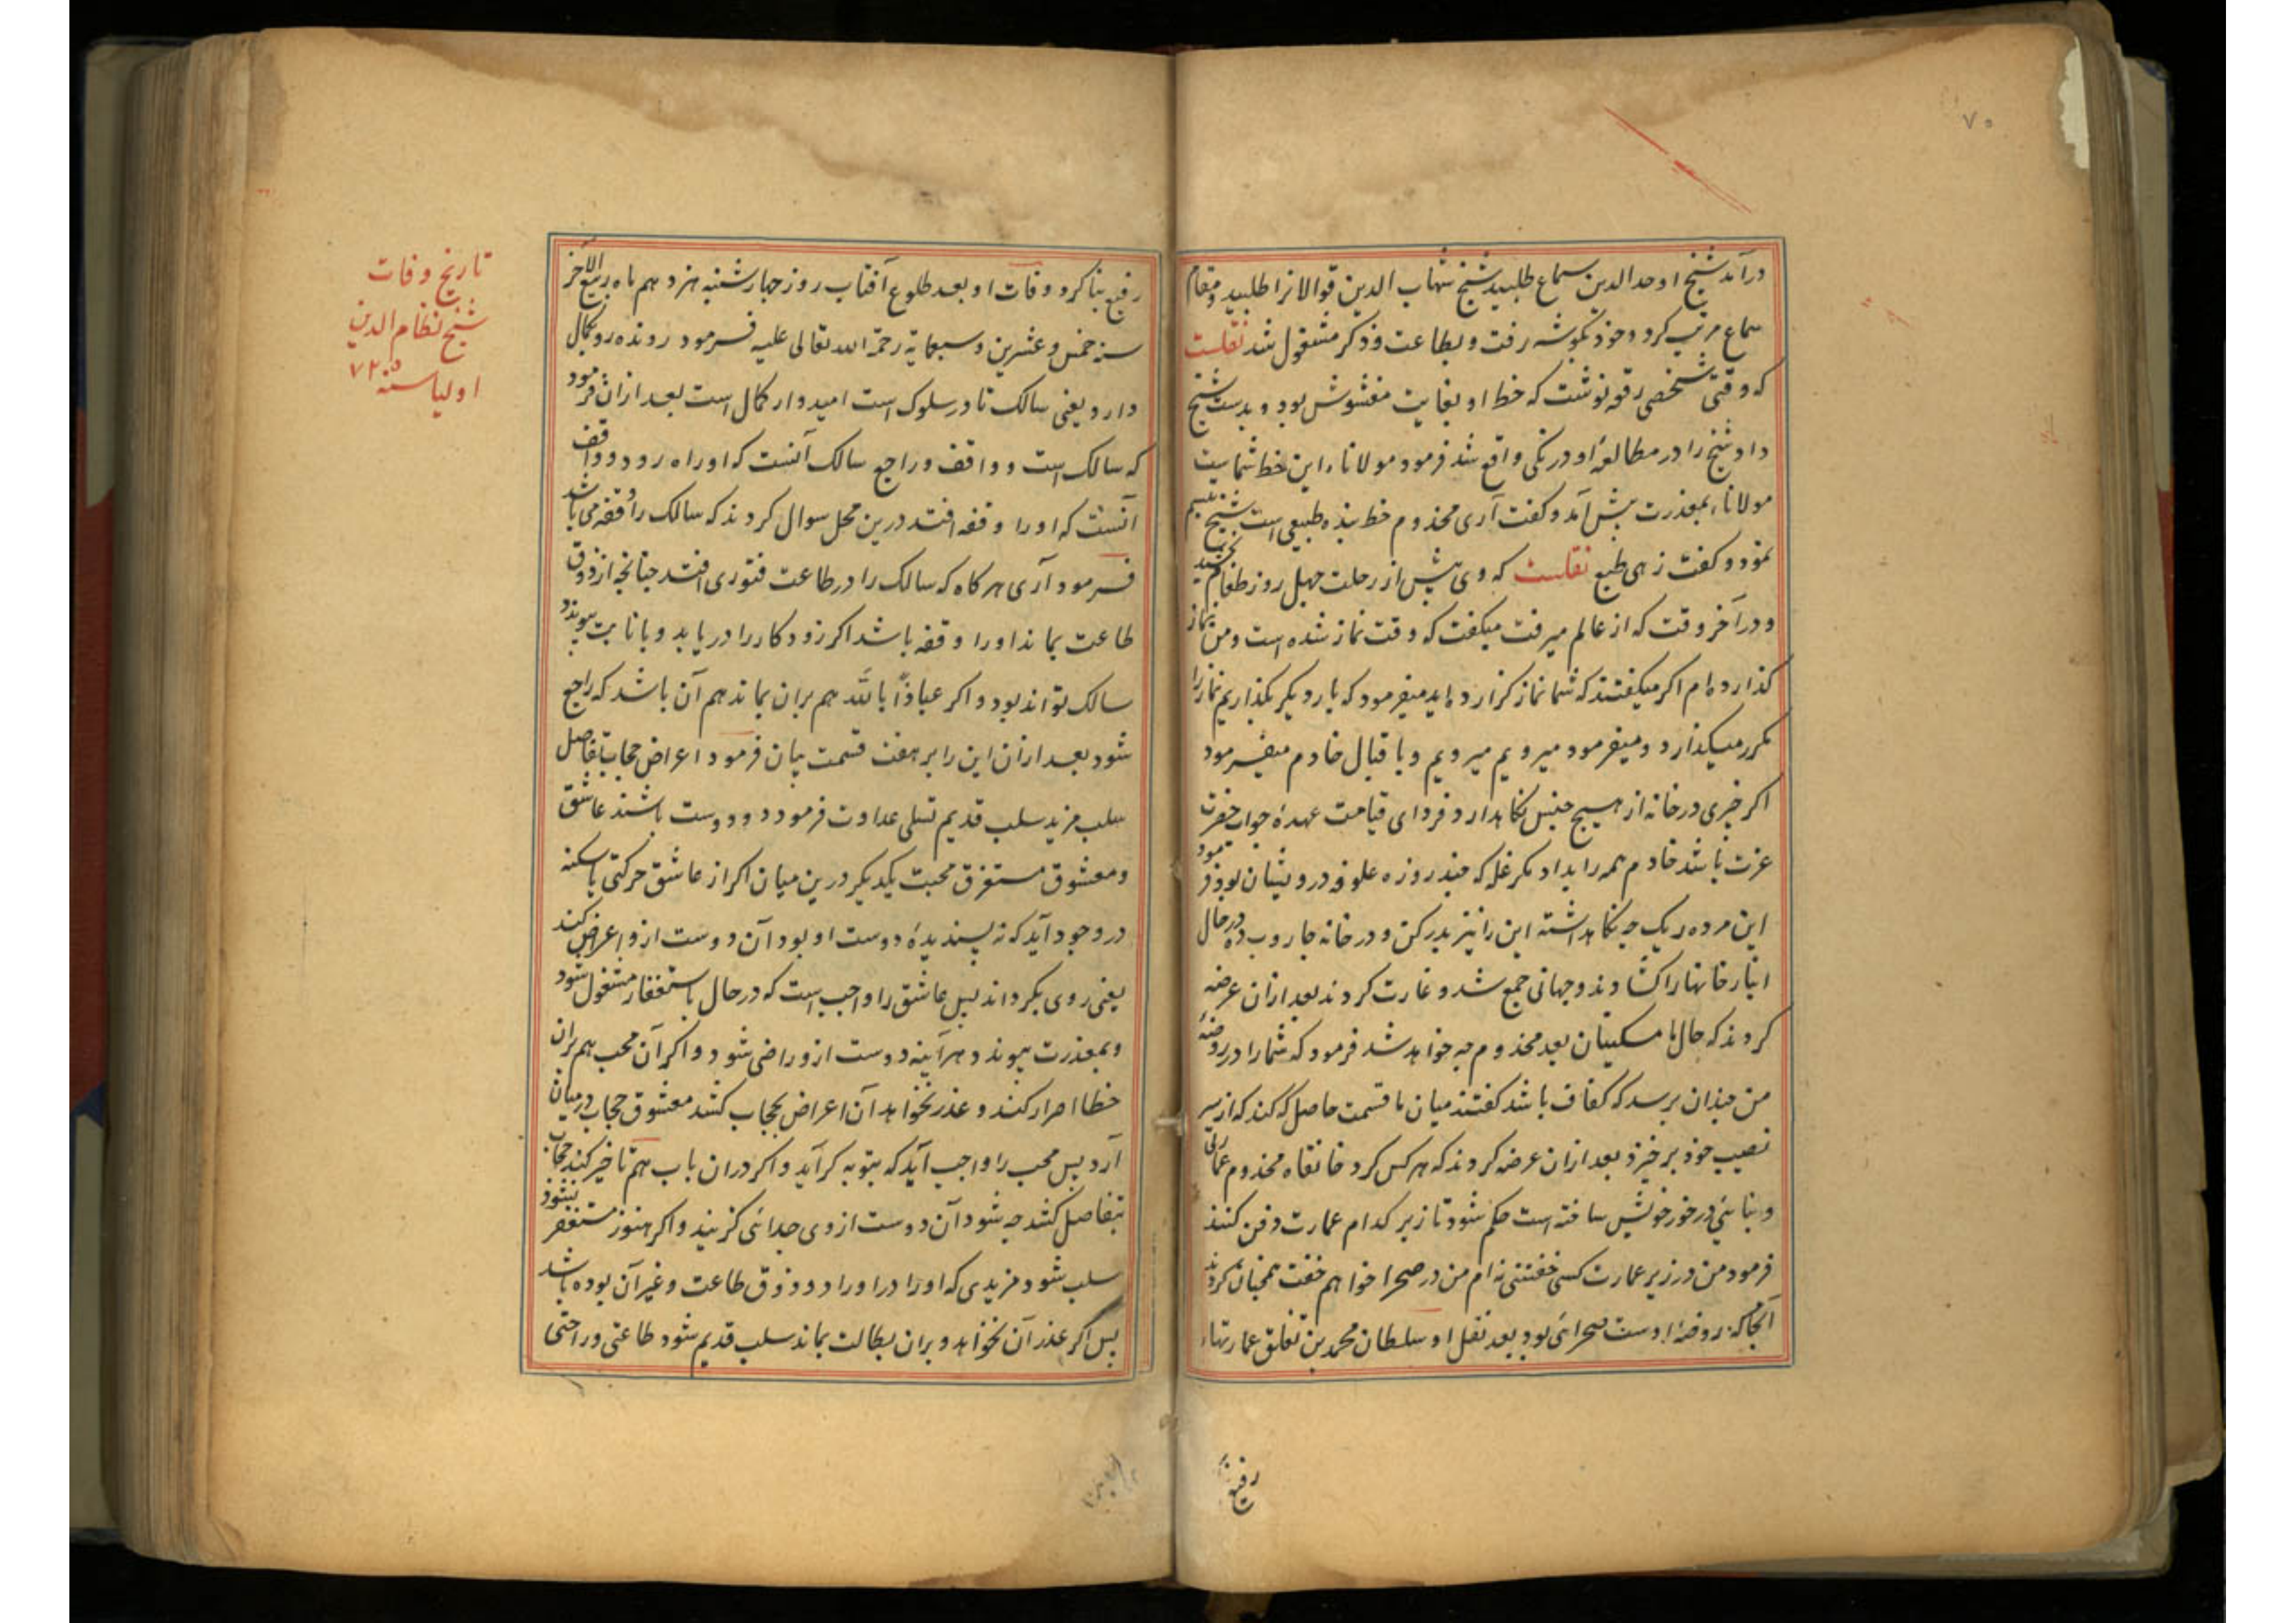 ۷۵
درآمد شیخ اوحدالدین سماع طلبید شیخ شهاب الدین قوالانرا طلبید و مقام
سماع مرتب کرد و خود بگوشه رفت و بطاعت و ذکر مشغول شد نقلست
که وقتی شخصی رقعه نوشت که خط او بغایت مغشوش بود و بدست شیخ
داد شیخ را در مطالعهٔ او درنگی واقع شد فرمود مولانا این خط شماست
مولانا بمعذرت پیش آمد و گفت آری مخدوم خط بنده طبیعی است شیخ تبسم
نمود و گفت زهی طبع نقلست که وی پیش از رحلت چهل روز طعام نچشید
و در آخر وقت که از عالم میرفت میگفت که وقت نماز شده است و من نماز
گذارده ام اگر میگفتند که شما نماز گزارده اید میفرمود که بار دیگر بگذاریم نماز را
مکرر میگذارد و میفرمود میرویم میرویم و باقبال خادم میفرمود
اگر چیزی در خانه از هیچ جنس نگاه دارد فردای قیامت عهدهٔ جواب حضرت
عزت باشد خادم همه را بداد مگر غله که چند روزه علوفه درویشان بود فرمود
این مرده ریگ چه نگاه داشته این را نیز بدر کن و در خانه جاروب ده در حال
انبار خانها را گشادند و جهانی جمع شد و غارت کردند بعد ازان عرضه
کردند که حال ما مسکینان بعد مخدوم چه خواهد شد فرمود که شما را در روضهٔ
من چندان برسد که کفاف باشد گفتند میان ما قسمت حاصل که کند که از سر
نصیب خود برخیزد بعد ازان عرضه کردند که هر کس گرد خانقاه مخدوم عمارتی
و بنائی درخور خویش ساخته است حکم شود تا زیر کدام عمارت دفن کنند
فرمود من در زیر عمارت کسی خفتنی نه ام من در صحرا خواهم خفت همچنان کردند
آنجا که روضهٔ اوست صحرائی بود بعد نقل او سلطان محمد بن تغلق عمارتهاء
رفیع
رفیع بنا کرد و وفات او بعد طلوع آفتاب روز چهارشنبه هزدهم ماه ربیع الآخر
سنه خمس و عشرین و سبعمایة رحمة الله تعالی علیه فرمود رونده رو بکمال
دارد یعنی سالک تا در سلوک است امیدوار کمال است بعد ازان فرمود
که سالک است و واقف و راجع سالک آنست که او راه رود و واقف
آنست که او را وقفه افتد درین محل سوال کردند که سالک را وقفه می باشد
فرمود آری هرگاه که سالک را در طاعت فتوری افتد چنانچه از ذوق
طاعت بماند او را وقفه باشد اگر زود کار را دریابد و بانابت پیوندد
سالک تواند بود و اگر عیاذاً بالله هم بران بماند بیم آن باشد که راجع
شود بعد ازان این را بر هفت قسمت بیان فرمود اعراض حجاب تفاصل
سلب مزید سلب قدیم تسلی عداوت فرمود دو دوست باشند عاشق
و معشوق مستغرق محبت یکدیگر درین میان اگر از عاشق حرکتی یا سکنه
در وجود آید که نه پسندیدهٔ دوست او بود آن دوست ازو اعراض کند
یعنی روی بگرداند پس عاشق را واجب است که در حال باستغفار مشغول شود
و بمعذرت پیوندد هرآینه دوست ازو راضی شود و اگر آن محب هم بران
خطا اصرار کند و عذر نخواهد آن اعراض بحجاب کشد معشوق حجاب درمیان
آرد پس محب را واجب آید که بتوبه گراید و اگر دران باب هم تاخیر کند حجاب
بتفاصل کشد چه شود آن دوست از وی جدائی گزیند و اگر هنوز مستغفر نشود
سلب شود مزیدی که او را در اوراد و ذوق طاعت و غیر آن بوده باشد
پس اگر عذر آن نخواهد و بران بطالت بماند سلب قدیم شود طاعتی و راحتی
تاریخ وفات
شیخ نظام الدین
اولیا سنه ۷۲۵